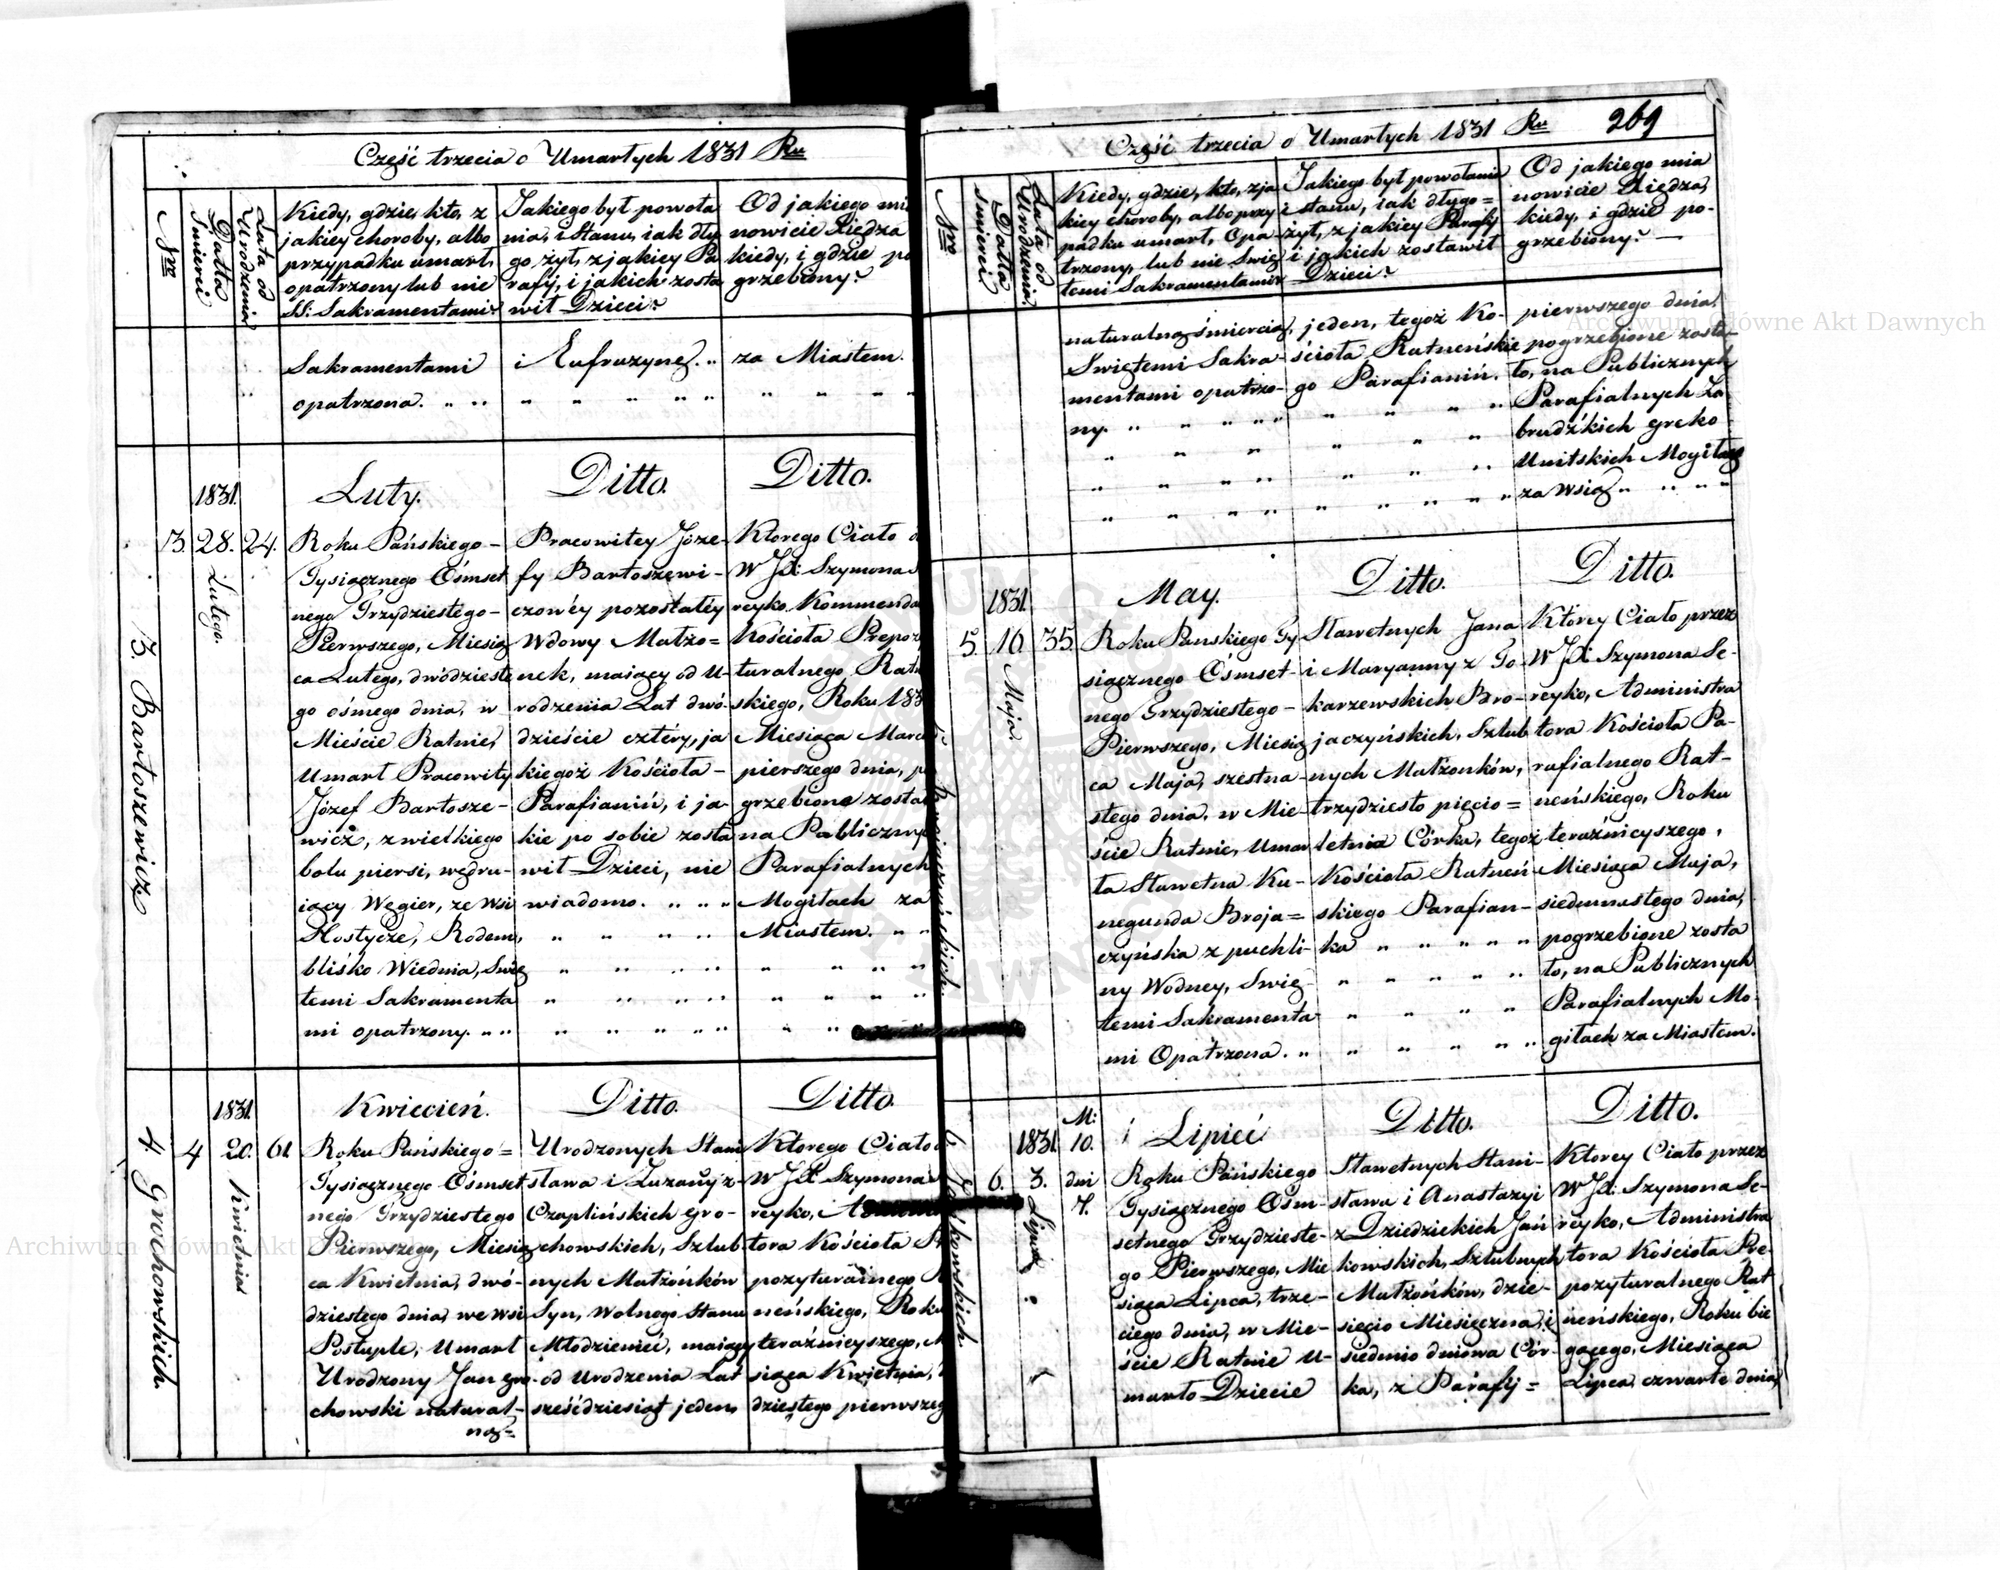 Część trzecia o Umarłych 1831 Ru
Nro
Datta Smierci
Lata od Urodzenia
Kiedy, gdzie, kto, z
jakiey choroby, albo
przypadku umarł,
opatrzony lub nie
SS: Sakramentami?
Jakiego był powoła
nia, i Stanu, iak dłu
go, żył, z jakiey Pa
rafij, i jakich zosta
wił Dzieci?
Od jakiego mia
nowicie Xiędza
kiedy, i gdzie po
grzebiony?
Sakramentami
opatrzona.
i Eufruzynę.
za Miastem.
3. Bartoszewicz
13.
1831.
28.
Lutego.
24.
Luty.
Roku Pańskiego -
Tysiącznego Ośmset
nego Trzydziestego -
Pierwszego, Miesią
ca Lutego, dwódzieste
go ośmego dnia, w
Mieście Ratnie,
Umarł Pracowity
Józef Bartosze-
wicz, z wielkiego
bolu piersi, wędru-
iący Węgier, ze Wsi
Hostycze, Rodem,
blisko Wiednia, Swię
temi Sakramenta
mi opatrzony.
Ditto.
Pracowitey Józe-
fy Bartoszewi-
czowéy pozostałéy
Wdowy Małżo=
nek, maiący od U-
rodzenia Lat dwó-
dzieście cztéry, ja
kiegoż Kościoła -
Parafianiń, i ja-
kie po sobie zosta
wił Dzieci, nie
wiadomo.
Ditto.
Którego Ciało
W JX: Szymona
reyko. Kommenda
Kościoła Prepoz
turalnego Ratn
skiego, Roku 183
Miesiąca Marc
pierszego dnia, po
grzebione zosta
na Publicznych
Parafialnych
Mogiłach za
Miastem.
4. Grochowskich.
4
1831.
20.
Kwietnia
61.
Kwiecień.
Roku Pańskiego =
Tysiącznego Ośmset
nego Trzydziestego
Pierwszego, Miesią
ca Kwietnia, dwó-
dziestego dnia, we Wsi
Postuple, Umarł
Urodzony Jan Gro-
chowski natural-
ną=
Ditto.
Urodzonych Stani
sława i Zuzanny z
Czaplińskich Gro-
chowskich, Szlub-
nych Małżónków
Syn, Wolnego Stanu
Młodzienieć, maiący
od Urodzenia Lat
sześćdziesiąt jeden,
Ditto.
Którego Ciało
W JX Szymona
reyko,
tora Kościoła Pr
pozyturalnego R
neńskiego, Roku
teraźnieyszego, M
siąca Kwietnia,
dziestego pierwszeg
Część trzecia o Umarłych 1831 Ru
269
Nro
Datta Smierci
Lata od Urodzenia.
Kiedy, gdzie, kto, z ja
kiey choroby, albo przy
padku umarł, Opa-
trzony, lub nie Swię
temi Sakramentami?
Jakiego był powołania
i stanu, iak długo=
żył, z jakiey Parafij
i jakich zostawił
Dzieci?
Od jakiego mia
nowicie Xiędza,
kiedy, i gdzie po-
grzebiony?
naturalną śmiercią,
Swiętemi Sakra-
mentami opatrzo-
ny.
jeden, tegoż Ko-
ścioła Ratneńskie
go Parafianiń.
pierwszego dnia,
pogrzebione zosta-
ło, na Publicznych
Parafialnych Za
brudźkich Greko
Unitskich Mogiłach
za Wsią
5. Brojaczyńskich.
5.
1831.
10.
Maja.
35.
May.
Roku Panskiego Ty
siącznego Ośmset-
nego Trzydziestego -
Pierwszego, Miesią
ca Maja, szestna-
stego dnia, w Mie-
ście Ratnie, Umar
ła Sławetna Ku-
negunda Broja=
czyńska z puchli-
ny Wodney, Swię-
temi Sakramenta-
mi Opatrzona.
Ditto.
Sławetnych Jana
i Maryanny z To-
karzewskich Bro-
jaczyńskich, Szlub
nych Małżonków,
trzydziesto pięcio=
letnia Córka, tegoż
Kościoła Ratneń-
skiego Parafian-
ka
Ditto.
Którey Ciało przez
W JX Szymona Se-
reyko, Administra
tora Kościoła Pa-
rafialnego Rat-
neńskiego, Roku
teraźnieyszego,
Miesiąca Maja,
siedmnastego dnia,
pogrzebione zosta
ło, na Publicznych
Parafialnych Mo-
giłach za Miastem.
6.
6.
1831.
3.
Lipca
M:
10.
dni
7.
Lipieć
Roku Pańskiego
Tysiącznego Ośm-
setnego Trzydzieste-
go Pierwszego, Mie
siąca Lipca, trze-
ciego dnia, w Mie-
ście Ratnie U-
marło Dziecie
Ditto.
Sławetnych Stani-
sława i Anastazyi
z Dziedzickich Jań
kowskich, Szlubnych
Małżónków, dzie-
sięcio Miesięczna, i
siedmio dniowa Cór-
ka, z Parafij =
Ditto.
Którey Ciało przez
W JX: Szymona Se-
reyko, Administra
tora Kościoła Pre-
pozyturalnego Rat
neńskiego, Roku bie
gącego, Miesiąca
Lipca, czwarte dnia,
Archiwum Główne Akt Dawnych
Archiwum Główne Akt Dawnych